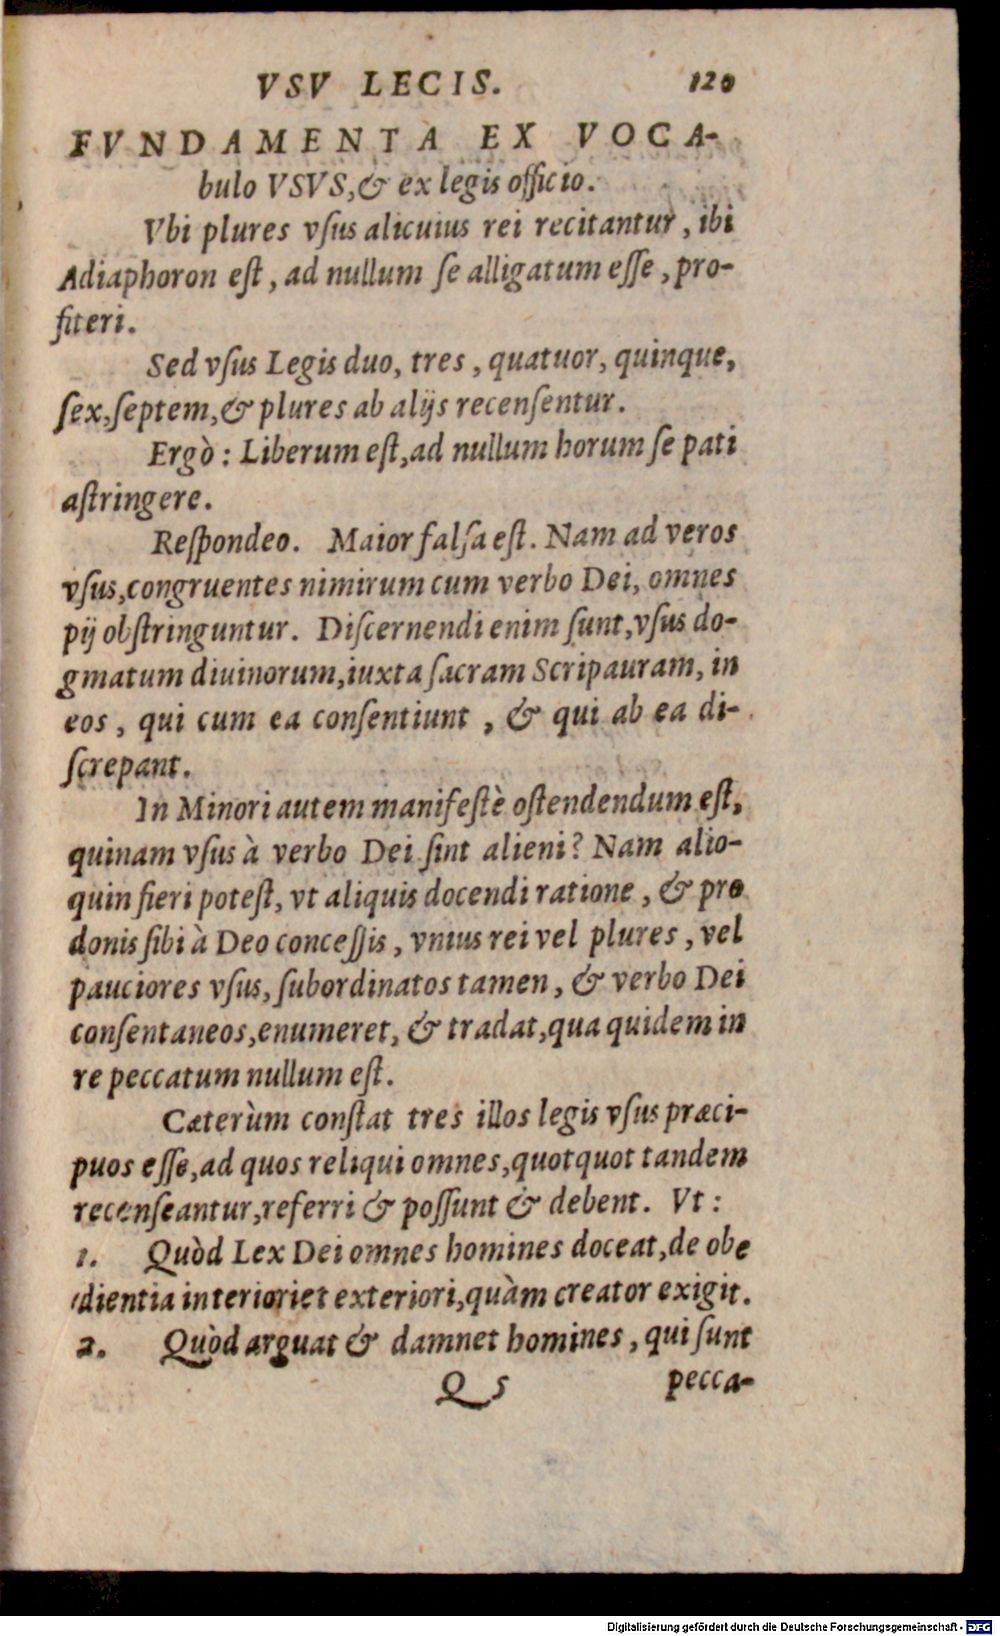 VSV LECIS. 120
FVNDAMENTA EX VOCA-
bulo VSVS,& ex legis officio.
Vbi plures vſus alicuius rei recitantur, ibi
Adiaphoron eſt, ad nullum ſe alligatum eſſe, pro-
fiteri.
Sed vſus Legis duo, tres, quatuor, quinque,
ſex,ſeptem,& plures ab alijs recenſentur.
Ergò: Liberum eſt,ad nullum horum ſe pati
aſtringere.
Reſpondeo. Maior falſa eſt. Nam ad veros
vſus,congruentes nimirum cum verbo Dei, omnes
pij obſtringuntur. Diſcernendi enim ſunt,vſus do-
gmatum diuinorum,iuxta ſacram Scripauram, in
eos, qui cum ea conſentiunt, & qui ab ea di-
ſcrepant.
In Minori autem manifeſtè oſtendendum eſt,
quinam vſus à verbo Dei ſint alieni? Nam alio-
quin fieri poteſt, vt aliquis docendi ratione, & pro
donis ſibi à Deo conceſſis, vnius rei vel plures, vel
pauciores vſus, ſubordinatos tamen, & verbo Dei
conſentaneos,enumeret, & tradat,qua quidem in
re peccatum nullum eſt.
Cæterùm conſtat tres illos legis vſus præci-
puos eſſe,ad quos reliqui omnes,quotquot tandem
recenſeantur,referri & poſſunt & debent. Vt:
1. Quòd Lex Dei omnes homines doceat,de obe
dientia interioriet exteriori,quàm creator exigit.
2. Quòd arguat & damnet homines, qui ſunt
Q 5 pecca-
Digitalisierung gefördert durch die Deutsche Forschungsgemeinschaft - DFG